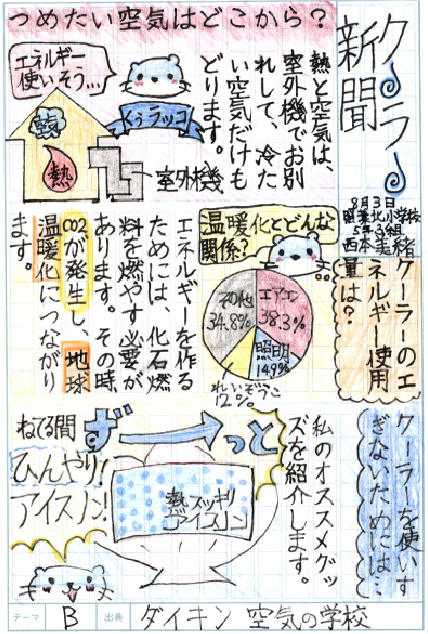 クーラー
新聞
8月3日
関葉北小学校
5年3組
西本美緒
つめたい空気はどこから?
熱と空気は、
室外機でお別
れして、冷た
い空気だけも
どります。
エネルギー
使いそう…
Kううラッコ
熱
熱
室外機
クーラーのエ
ネルギー使用
量は?
温暖化とどんな
関係?
エアコン
38.3%
照明
14.9%
れいぞうこ
12%
その他
34.8%
エネルギーを作る
ためには、化石燃
料を燃やす必要が
あります。その時
CO2が発生し、地球
温暖化につながり
ます。
クーラーを使いす
ぎないためには…
私のオススメグッ
ズを紹介します。
ねてる間
ずーっと
ひんやり!
アイスノン!
熱スッキリ
アイスノン
テーマ
B
出典
ダイキン 空気の学校